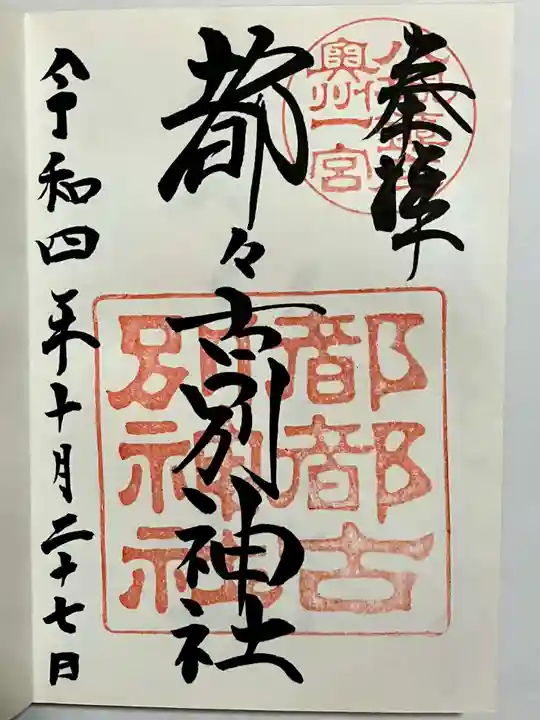 奉拝
奥州一宮
都々古別神社
都都古
別神社
令和四年十月二十七日